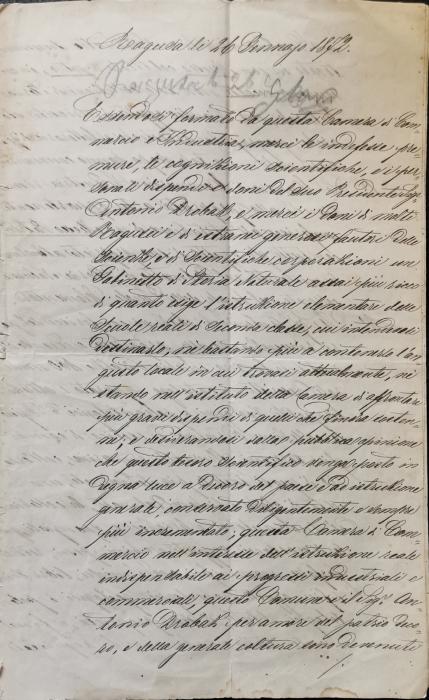 Ragusa li 26 Gennajo 1872.
Essendosi formato da questa Camera di Com-
mercio e Industria, mercè le indefesse pre-
mure, le cognizioni scientifiche, e i per-
sonali dispendi e doni del suo Presidente Sigr.
Antonio Drobatz, e mercè i doni di molti
Ragusei e di estranei generosi fautori delle
Scienze, e di Scientifiche corporazioni un
Gabinetto di Storia Naturale assai più ricco
di quanto esige l'istruzione elementare delle
Scuole reali di seconda classe, cui intendevasi
destinarlo; nè bastando più a contenerlo l'an-
gusto locale in cui trovasi attualmente, nè
stando nell'istituto della Camera di affrontare
più grandi dispendi di quelli che finora sosten-
ne; e desiderandosi dalla pubblica opinione
che questo tesoro scientifico venga posto in
degna luce a decoro del paese e ad istruzione
generale, conservato diligentemente e sempre
più incrementato; questa Camera di Com-
mercio nell'interesse dell'istruzione reale
indispendabile ai progressi industriali e
commerciali, questo Comune e il Sigr. An-
tonio Drobatz per amore del patrio deco-
ro, e della generale coltura sono devenuti